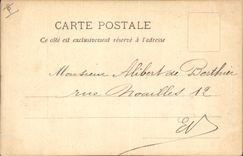 CARTE POSTALE
Ce côté est exclusivement réservé à l'adresse
Monsieur Alibert de Berthier
rue Noailles 12
EV